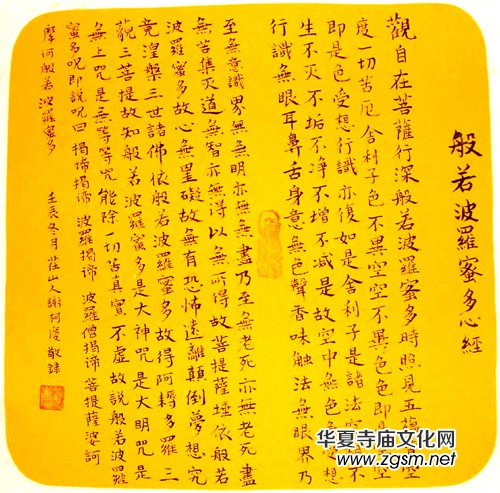 般若波羅蜜多心經
觀自在菩薩行深般若波羅蜜多時照見五蘊皆空
度一切苦厄舍利子色不異空空不異色色即是空空
即是色受想行識亦復如是舍利子是諸法空相不
生不灭不垢不净不增不減是故空中無色無受想
行識無眼耳鼻舌身意無色聲香味触法無眼界乃
至無意識界無無明亦無無盡乃至無老死亦無老死盡
無苦集灭道無智亦無得以無所得故菩提薩埵依般若
波羅蜜多故心無罣礙故無有恐怖遠離顛倒夢想究
竟涅槃三世諸佛依般若波羅蜜多故得阿耨多羅三
藐三菩提故知般若波羅蜜多是大神咒是大明咒是
無上咒是無等等咒能除一切苦真實不虛故說般若波羅
蜜多咒即說咒曰揭諦揭諦 波羅揭諦 波羅僧揭諦菩提薩婆訶
摩訶般若波羅蜜多 壬辰冬月莊山人謝敬錄
华夏寺庙文化网
www.zgsm.net